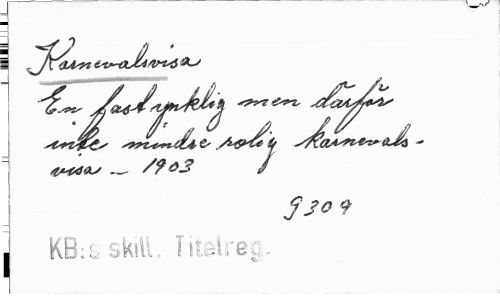 Karnevalsvisa
En fast ynklig men därför
inte mindre rolig karnevals-
visa - 1903
G 309
KB:s skill. Titelreg.